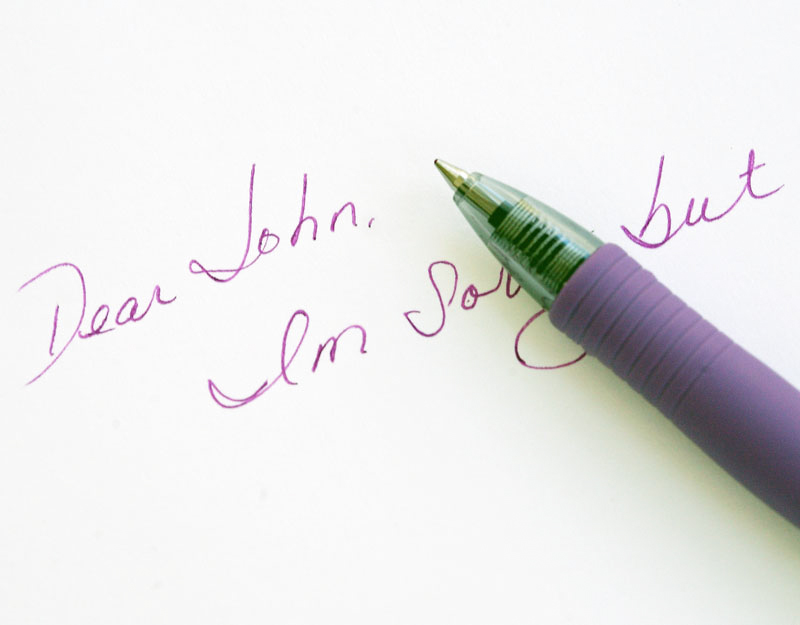 Dear John,
Im Sorry but